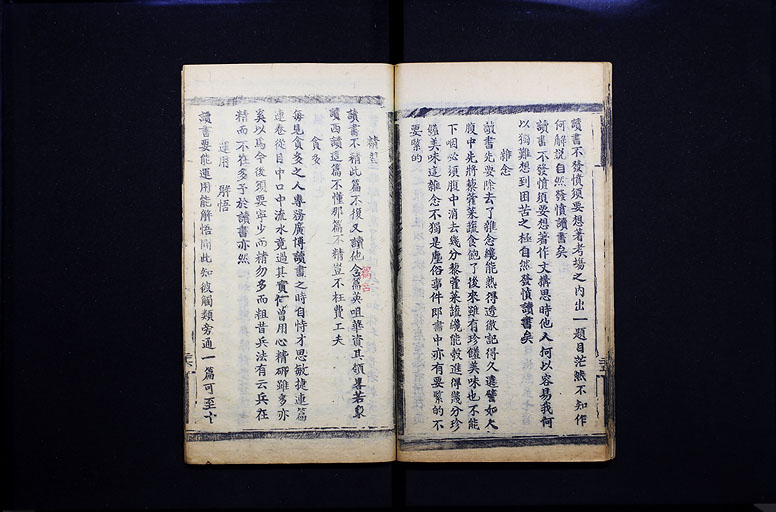 讀書不發憤須要想著考場之內出一題目茫然不知作
何解說自然發憤讀書矣
讀書不發憤須要想著作文搆思時他人何以容易我何
以獨難想到困苦之極自然發憤讀書矣
雜念
讀書先要除去了雜念纔能熟得透徹記得久遠譬如人
腹中先將藜藿菜蔬食飽了後來雖有珍饈美味也不能
下咽必須腹中消去幾分藜藿菜蔬纔能教進得幾分珍
饈美味這雜念不獨是塵俗事件即書中亦有要緊的不
要緊的
精習
讀書不精此篇不復又讀他篇含英咀華資其領畧若東
讀西讀這篇不懂那篇不精豈不枉費工夫
貪多
每見貪多之人專務廣博讀書之時自恃才思敏捷連篇
連卷從目中口中流水竟過其實何曾用心精研雖多亦
奚以為今後須要寧少而精勿多而粗昔兵法有云兵在
精而不在多予於讀書亦然
運用 解悟
讀書要能運用能解悟聞此知彼觸類旁通一篇可至十